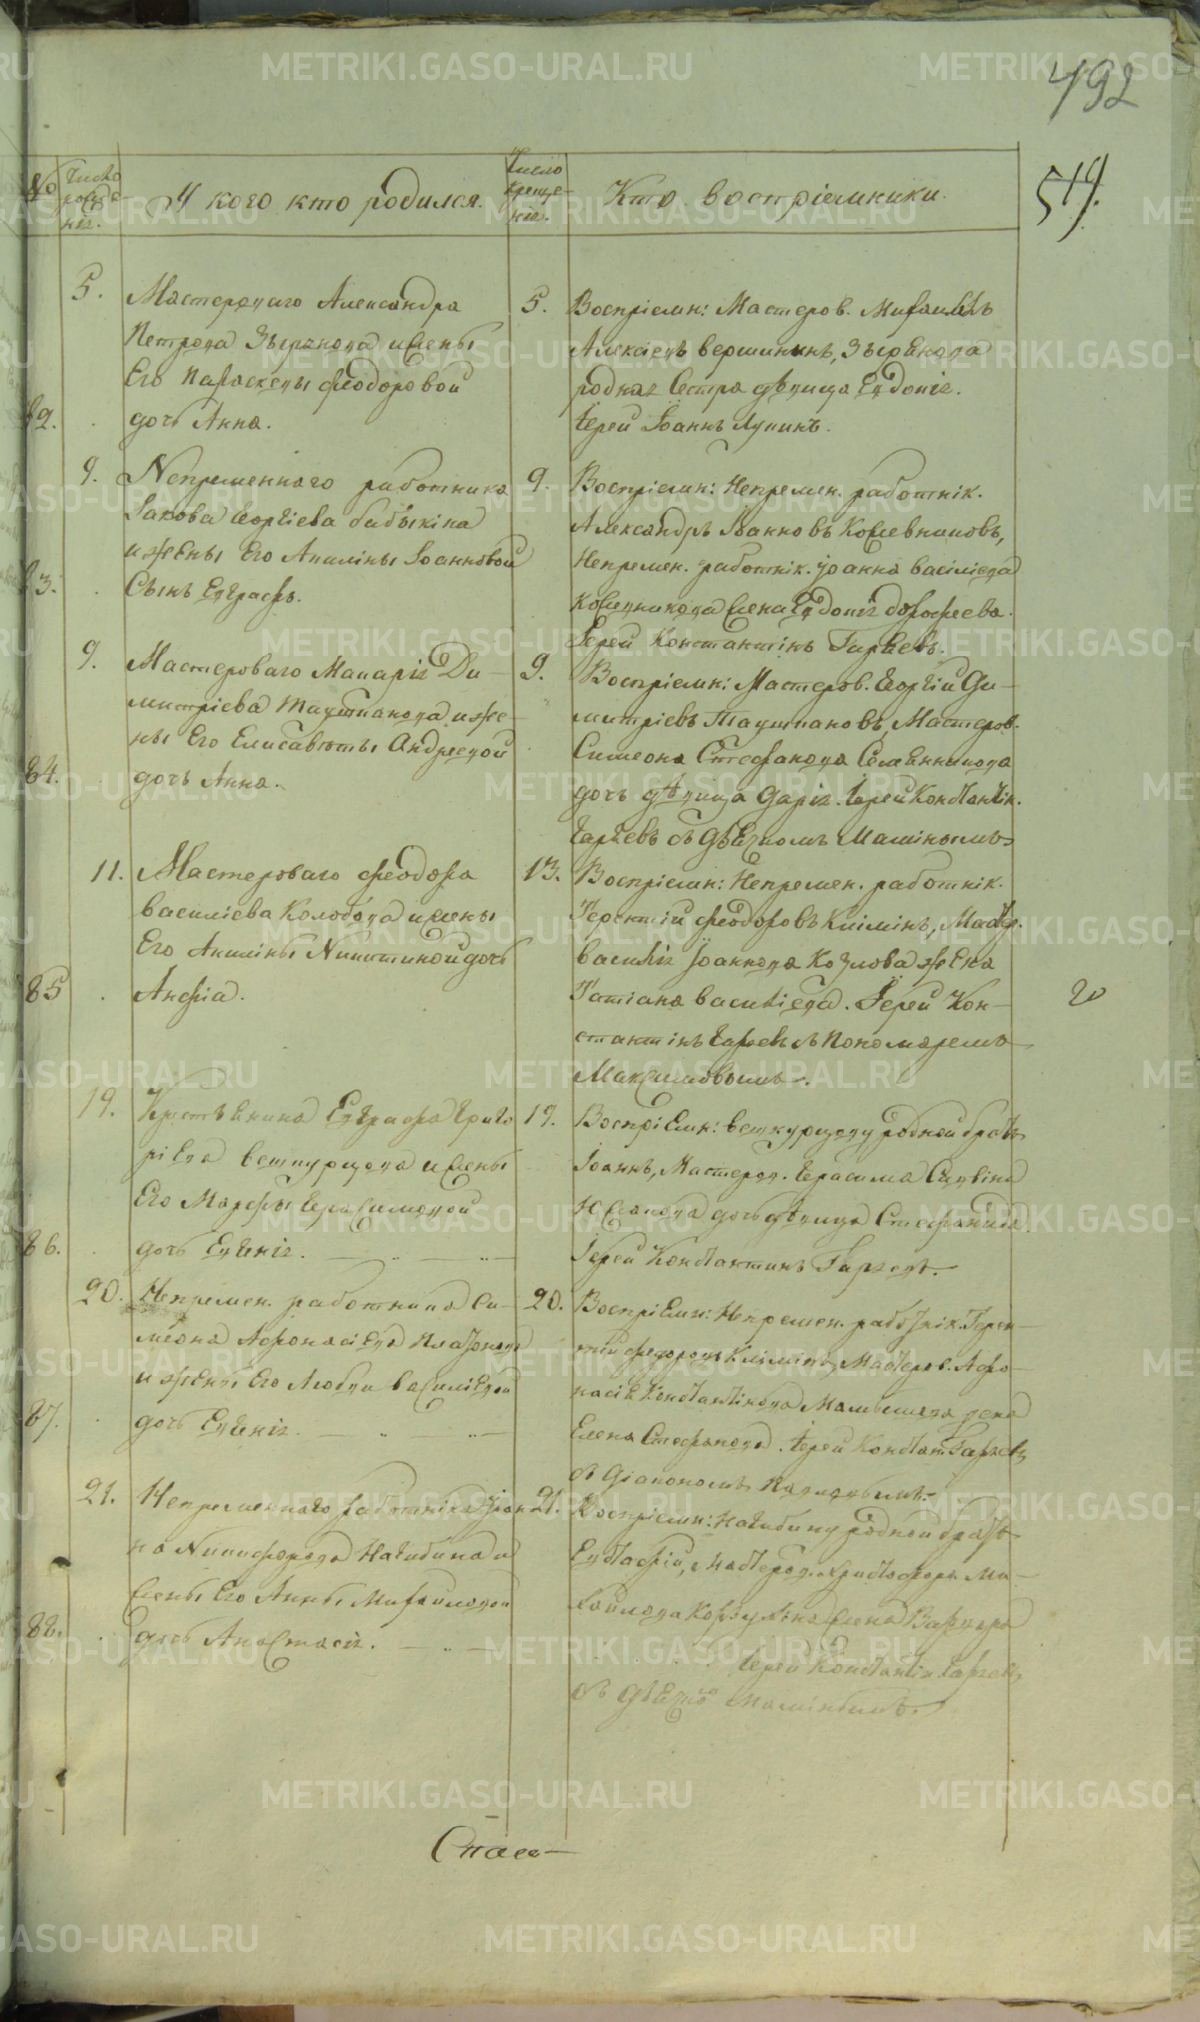 492
519.
№
Число рожде-
нія.
У кого кто родился.
Число
креще-
нія.
Кто воспріемники.
5.
Мастероваго Александра
Петрова Зырянова и жены
Его Параскевы Феодоровой
82.
дочь Анна.
5.
Воспріемн: Мастеров. Михаилъ
Алексѣевъ Вершининъ, Зырянова
родная Сестра дѣвица Евдокія.
Іерей Іоаннъ Лупинъ.
9.
Непременнаго работника
Іакова Георгіева Бабыкина
и жены Его Акилины Іоанновой
83.
Сынъ Евграфъ.
9.
Воспріемн: Непремен. работнік.
Александръ Іоанновъ Кожевниковъ,
Непремен. работнік. Іоанна Васіліева
Кожевникова жена Евдокія Дорофеева.
Іерей Константінъ Гаряевъ.
9.
Мастероваго Макарія Ди-
митріева Таушканова и же-
ны Его Елисаветы Андреевой
84.
дочь Анна.
9.
Воспріемн: Мастеров. Георгій Ди-
митріевъ Таушкановъ, Мастеров.
Симеона Стефанова Семенникова
дочь дѣвица Дарія. Іерей Константін.
Гаряевъ съ дьячкомъ Маминымъ
11.
Мастероваго Феодора
Василіева Колобова и жены
Его Акилины Никитиной дочь
85
Анфіа.
13.
Воспріемн: Непремен. работнік.
Терентій Феодоровъ Климінъ, Мастер.
Василія Іоаннова Козлова жена
Татіана Василіева. Іерей Кон-
стантінъ Гаряевъ съ пономаремъ
Максимовымъ.
20
19.
Крестьянина Евграфа Григо
ріева Веткурцова и жены
Его Марфы Герасимовой
86.
дочь Евгенія.
19.
Воспріемн: Веткурцову родной братъ
Іоаннъ, Мастеров. Герасима Саввина
Южакова дочь дѣвица Стефанида.
Іерей Константинъ Гаряевъ.
20.
Непремен. работника Си-
меона Афонасіева Платонова
и жены Его Любви Василіевой
87.
дочь Евгенія.
20.
Воспріемн: Непремен. работнік. Терен-
тій Федоровъ Климінъ, Мастеров. Афо-
насія Константінова Малышева жена
Елена Стефанова. Іерей Констант. Гаряевъ
съ Діакономъ
21.
Непременнаго работника Іоан
на Никифорова Нагибина и
жены Его Анны Михайловой
88.
дочь Анастасія.
21.
Воспріемн: Нагибину родной братъ
Евстафій, Мастеров. Христофора Ми-
хайлова Корзухина жена Варвара
Іерей Константін. Гаряевъ
съ дьячко Маминымъ.
Спасо-
METRIKI.GASO-URAL.RU